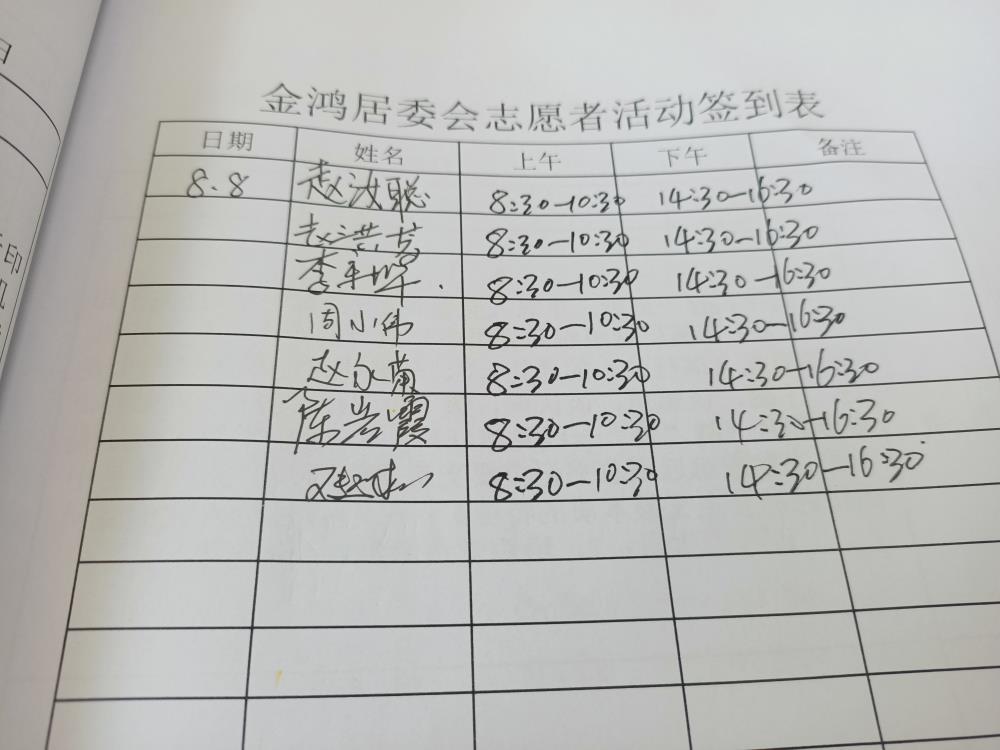 日
印
机
金鸿居委会志愿者活动签到表
日期 姓名 上午 下午 备注
8.8 赵汝聪 8:30-10:30 14:30-16:30
赵洪芳 8:30-10:30 14:30-16:30
李 8:30-10:30 14:30-16:30
周小伟 8:30-10:30 14:30-16:30
赵永菊 8:30-10:30 14:30-16:30
陈岩霞 8:30-10:30 14:30-16:30
8:30-10:30 14:30-16:30